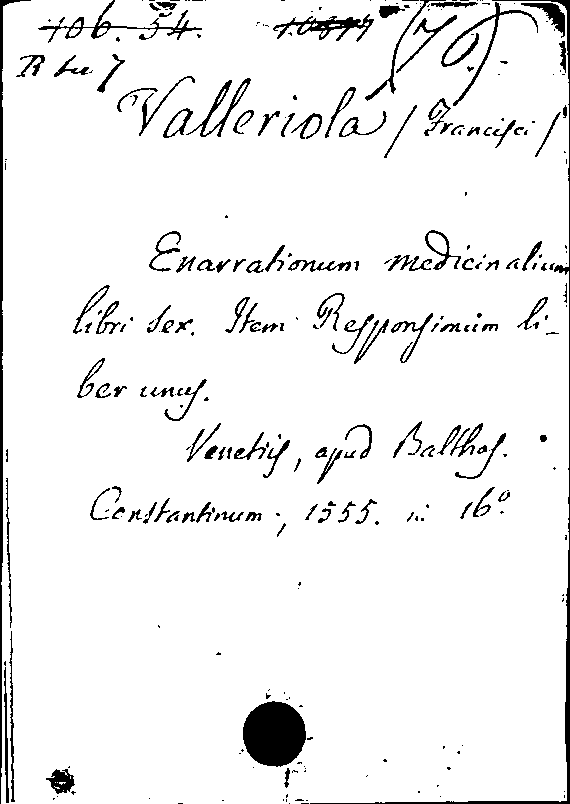 106. 54. (76).
R 7
Valleriola / Francisci /
Enarrationum medicinalium
libri sex. Item Responsimum li-
ber unus.
Venetiis, apud Balthas.
Constantinum, 1555. in 16º